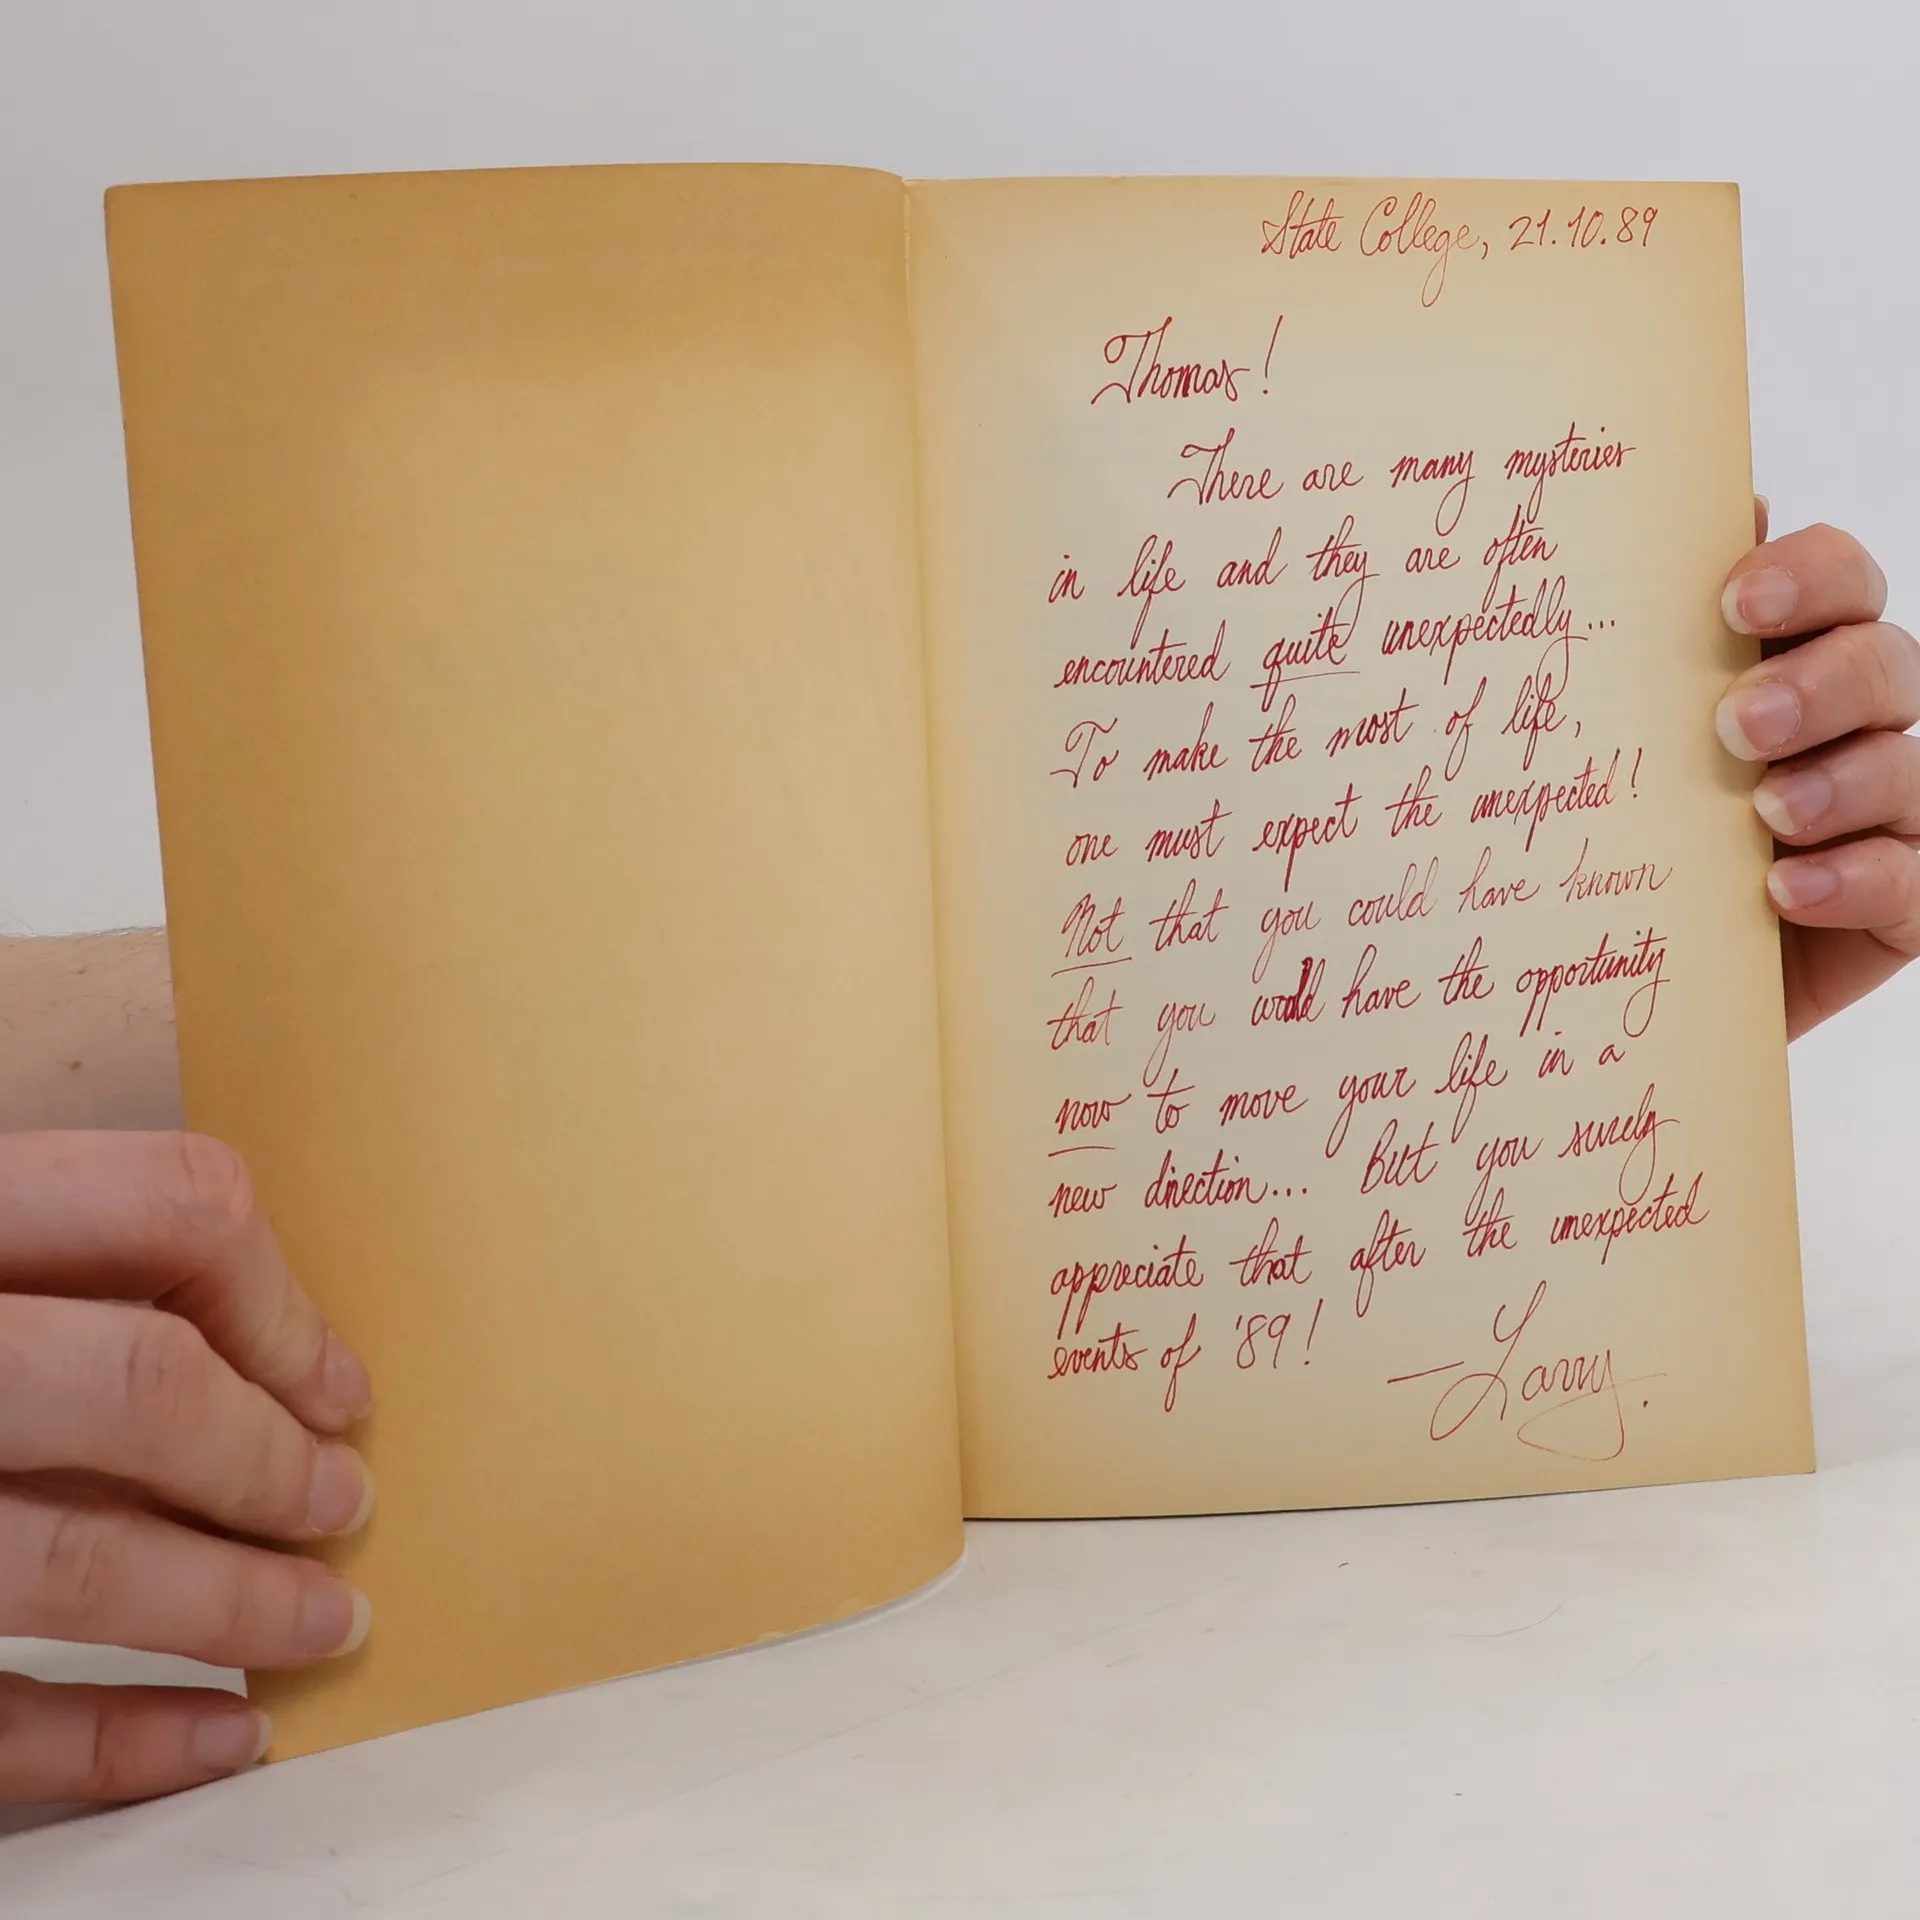 State College, 21.10.89
Thomas!
There are many mysteries
in life and they are often
encountered quite unexpectedly...
To make the most of life,
one must expect the unexpected!
Not that you could have known
that you would have the opportunity
now to move your life in a
new direction... But you surely
appreciate that after the unexpected
events of '89!
—Larry.